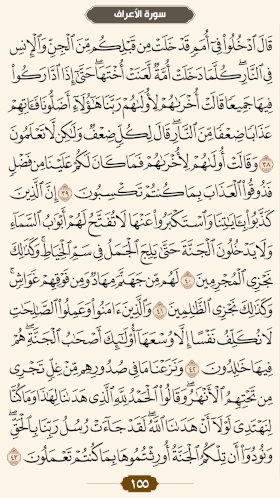 سورة الأعراف
قَالَ ٱدْخُلُوا۟ فِىٓ أُمَمٍ قَدْ خَلَتْ مِن قَبْلِكُم مِّنَ ٱلْجِنِّ وَٱلْإِنسِ
فِى ٱلنَّارِ ۖ كُلَّمَا دَخَلَتْ أُمَّةٌ لَّعَنَتْ أُخْتَهَا ۖ حَتَّىٰٓ إِذَا ٱدَّارَكُوا۟
فِيهَا جَمِيعًا قَالَتْ أُخْرَىٰهُمْ لِأُولَىٰهُمْ رَبَّنَا هَـٰٓؤُلَآءِ أَضَلُّونَا فَـَٔاتِهِمْ
عَذَابًا ضِعْفًا مِّنَ ٱلنَّارِ ۖ قَالَ لِكُلٍّ ضِعْفٌ وَلَـٰكِن لَّا تَعْلَمُونَ
٣٨ وَقَالَتْ أُولَىٰهُمْ لِأُخْرَىٰهُمْ فَمَا كَانَ لَكُمْ عَلَيْنَا مِن فَضْلٍ
فَذُوقُوا۟ ٱلْعَذَابَ بِمَا كُنتُمْ تَكْسِبُونَ ٣٩ إِنَّ ٱلَّذِينَ
كَذَّبُوا۟ بِـَٔايَـٰتِنَا وَٱسْتَكْبَرُوا۟ عَنْهَا لَا تُفَتَّحُ لَهُمْ أَبْوَٰبُ ٱلسَّمَآءِ
وَلَا يَدْخُلُونَ ٱلْجَنَّةَ حَتَّىٰ يَلِجَ ٱلْجَمَلُ فِى سَمِّ ٱلْخِيَاطِ ۚ وَكَذَٰلِكَ
نَجْزِى ٱلْمُجْرِمِينَ ٤٠ لَهُم مِّن جَهَنَّمَ مِهَادٌ وَمِن فَوْقِهِمْ غَوَاشٍ ۚ
وَكَذَٰلِكَ نَجْزِى ٱلظَّـٰلِمِينَ ٤١ وَٱلَّذِينَ ءَامَنُوا۟ وَعَمِلُوا۟ ٱلصَّـٰلِحَـٰتِ
لَا نُكَلِّفُ نَفْسًا إِلَّا وُسْعَهَآ أُو۟لَـٰٓئِكَ أَصْحَـٰبُ ٱلْجَنَّةِ ۖ هُمْ
فِيهَا خَـٰلِدُونَ ٤٢ وَنَزَعْنَا مَا فِى صُدُورِهِم مِّنْ غِلٍّ تَجْرِى
مِن تَحْتِهِمُ ٱلْأَنْهَـٰرُ ۖ وَقَالُوا۟ ٱلْحَمْدُ لِلَّهِ ٱلَّذِى هَدَىٰنَا لِهَـٰذَا وَمَا كُنَّا
لِنَهْتَدِىَ لَوْلَآ أَنْ هَدَىٰنَا ٱللَّهُ ۖ لَقَدْ جَآءَتْ رُسُلُ رَبِّنَا بِٱلْحَقِّ ۖ
وَنُودُوٓا۟ أَن تِلْكُمُ ٱلْجَنَّةُ أُورِثْتُمُوهَا بِمَا كُنتُمْ تَعْمَلُونَ ٤٣
١٥٥